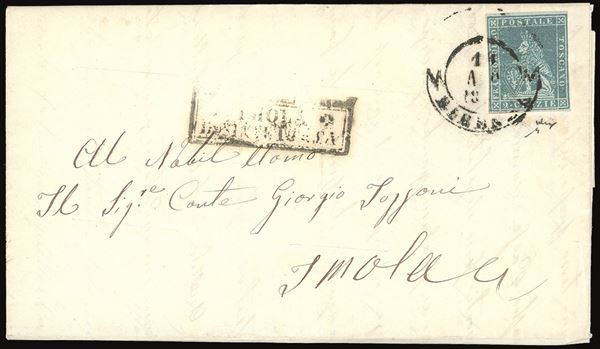 FRANCOBOLLO
POSTALE
TOSCANO
CRAZIE
11
IMOLA
Al Nobil Uomo
Il Sig.re Conte Giorgio Tozzoni
Imola